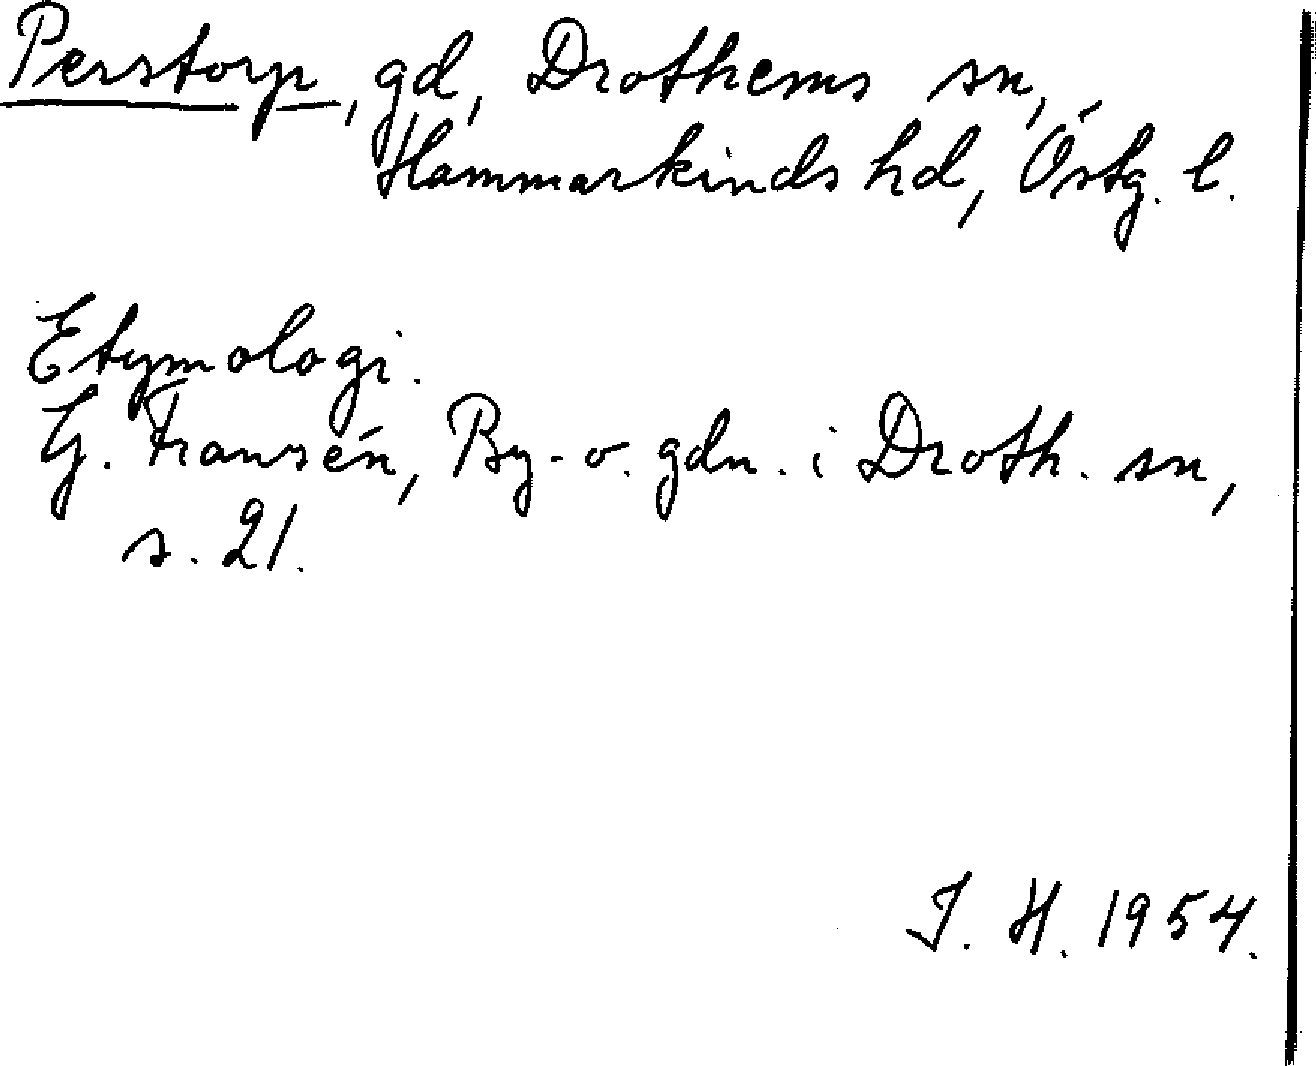 Perstorp, gd, Drothems sn,
Hammarkinds hd, Östg. l.
Etymologi.
G. Fransén, By- o. gdn. i Droth. sn,
s. 21.
J. H. 1954.